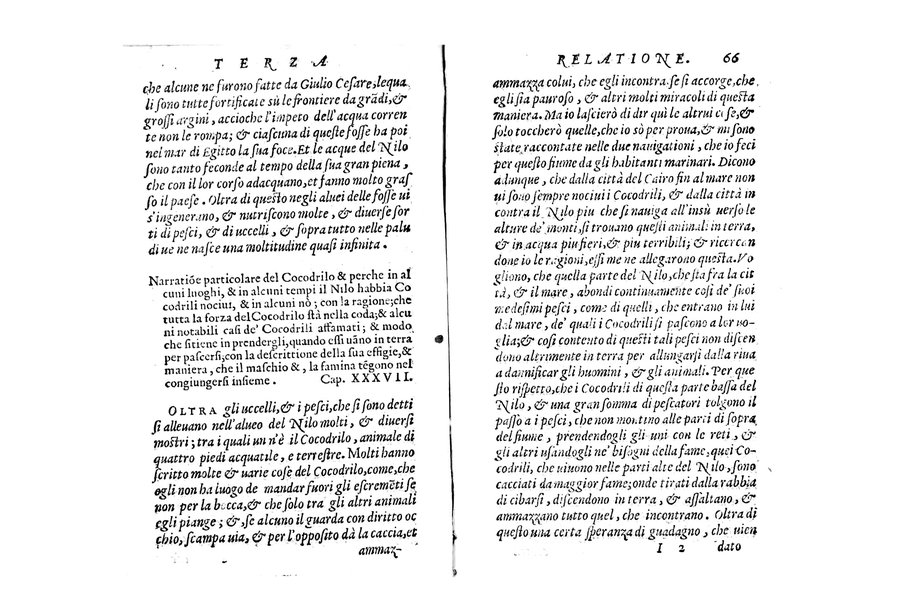 TERZA
che alcune ne furono fatte da Giulio Cesare, lequa
li sono tutte fortificate sù le frontiere da grãdi, &
grossi argini, accioche l'impeto dell'acqua corren
te non le rompa; & ciascuna di queste fosse ha poi
nel mar di Egitto la sua foce. Et le acque del Nilo
sono tanto feconde al tempo della sua gran piena,
che con il lor corso adacquano, et fanno molto gras
so il paese. Oltra di questo negli aluei delle fosse ui
s'ingenerano, & nutriscono molte, & diuerse sor
ti di pesci, & di uccelli, & sopra tutto nelle palu
di ue ne nasce una moltitudine quasi infinita.
Narratiõe particolare del Cocodrilo & perche in al
cuni luoghi, & in alcuni tempi il Nilo habbia Co
codrili nociui, & in alcuni nò; con la ragione; che
tutta la forza del Cocodrilo stà nella coda; & alcu
ni notabili casi de' Cocodrili affamati; & modo
che si tiene in prendergli, quando essi uãno in terra
per pascersi; con la descrittione della sua effigie, &
maniera, che il maschio &, la famina tẽgono nel
congiungersi insieme. Cap. XXXVII.
OLTRA gli uccelli, & i pesci, che si sono detti
si alleuano nell'alueo del Nilo molti, & diuersi
mostri; tra i quali un n'è il Cocodrilo, animale di
quattro piedi acquatile, e terrestre. Molti hanno
scritto molte & uarie cose del Cocodrilo, come, che
egli non ha luogo de mandar fuori gli escremẽti se
non per la bocca, & che solo tra gli altri animali
egli piange; &, se alcuno il guarda con diritto oc
chio, scampa uia, & per l'opposito dà la caccia, et
ammaz-
RELATIONE. 66
ammazza colui, che egli incontra. se si accorge, che
egli sia pauroso, & altri molti miracoli di questa
maniera. Ma io lascierò di dir quì le altrui cose, &
solo toccherò quelle, che io sò per proua, & mi sono
state raccontate nelle due nauigationi, che io feci
per questo fiume da gli habitanti marinari. Dicono
adunque, che dalla città del Cairo fin al mare non
ui sono sempre nociui i Cocodrili, & dalla città in
contra il Nilo piu che si nauiga all'insù uerso le
alture de' monti, si trouano questi animali in terra,
& in acqua piu fieri, & piu terribili; & ricercan
done io le ragioni, essi me ne allegarono questa. Vo
gliono, che quella parte del Nilo, che sta fra la cit
tà, & il mare, abondi continuamente cosi de' suoi
medesimi pesci, come di quelli, che entrano in lui
dal mare, de' quali i Cocodrili si pascono a lor uo-
glia; & cosi contento di questi tali pesci non discen
dono altrimente in terra per allungarsi dalla riua
a dannificar gli huomini, & gli animali. Per que
sto rispetto, che i Cocodrili di questa parte bassa del
Nilo, & una gran somma di pescatori tolgono il
passo a i pesci, che non montino alle parti di sopra
del fiume, prendendogli gli uni con le reti, &
gli altri usandogli ne' bisogni della fame, quei Co-
codrili, che uiuono nelle parti alte del Nilo, sono
cacciati da maggior fame; onde tirati dalla rabbia
di cibarsi, discendono in terra, & assaltano, &
ammazzano tutto quel, che incontrano. Oltra di
questo una certa speranza di guadagno, che uien
I 2 dato